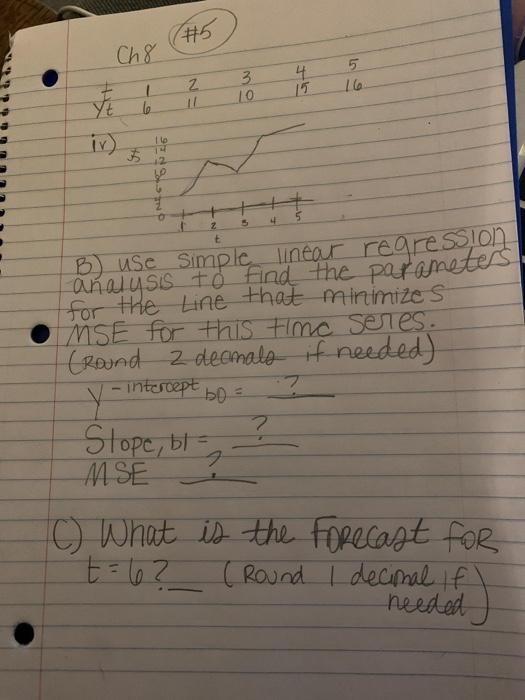 Ch8 #5
t 1 2 3 4 5
Yt 6 11 10 15 16
iv) 16
14
12
10
8
6
4
2
0
1 2 3 4 5
t
B) use simple linear regression
analysis to find the parameters
for the Line that minimizes
MSE for this time series.
(Round 2 decimals if needed)
y-intercept b0 = ?
Slope, b1 = ?
MSE ?
C) What is the Forecast for
t=6? (Round 1 decimal if
needed)